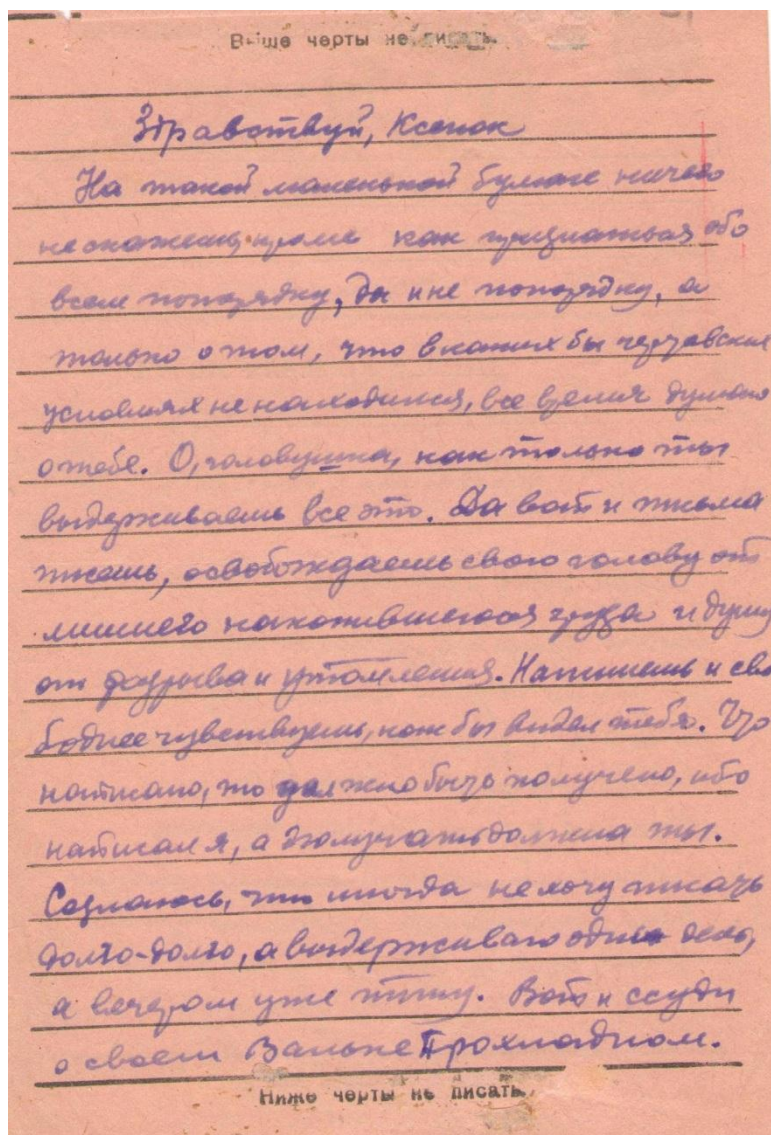 Выше черты не писать.
Здравствуй, Ксенок
На такой маленькой бумаге ничего
не скажешь, кроме как признаться обо
всем попорядку, да и не попорядку, а
только о том, что в каких бы чертовских
условиях не находился, все время думаю
о тебе. О, головушка, как только ты
выдерживаешь все это. Да вот и письма
пишешь, освобождаешь свою голову от
лишнего накопившегося груза и душу
от разрыва и утомления. Напишешь и сво
боднее чувствуешь, как бы видел тебя. Что
написано, то должно быть получено, ибо
написал я, а получать должна ты.
Сознаюсь, что иногда не хочу писать
долго-долго, а выдерживаю один день,
а вечером уже пишу. Вот и суди
о своем Ваньке Прохладном.
Ниже черты не писать.